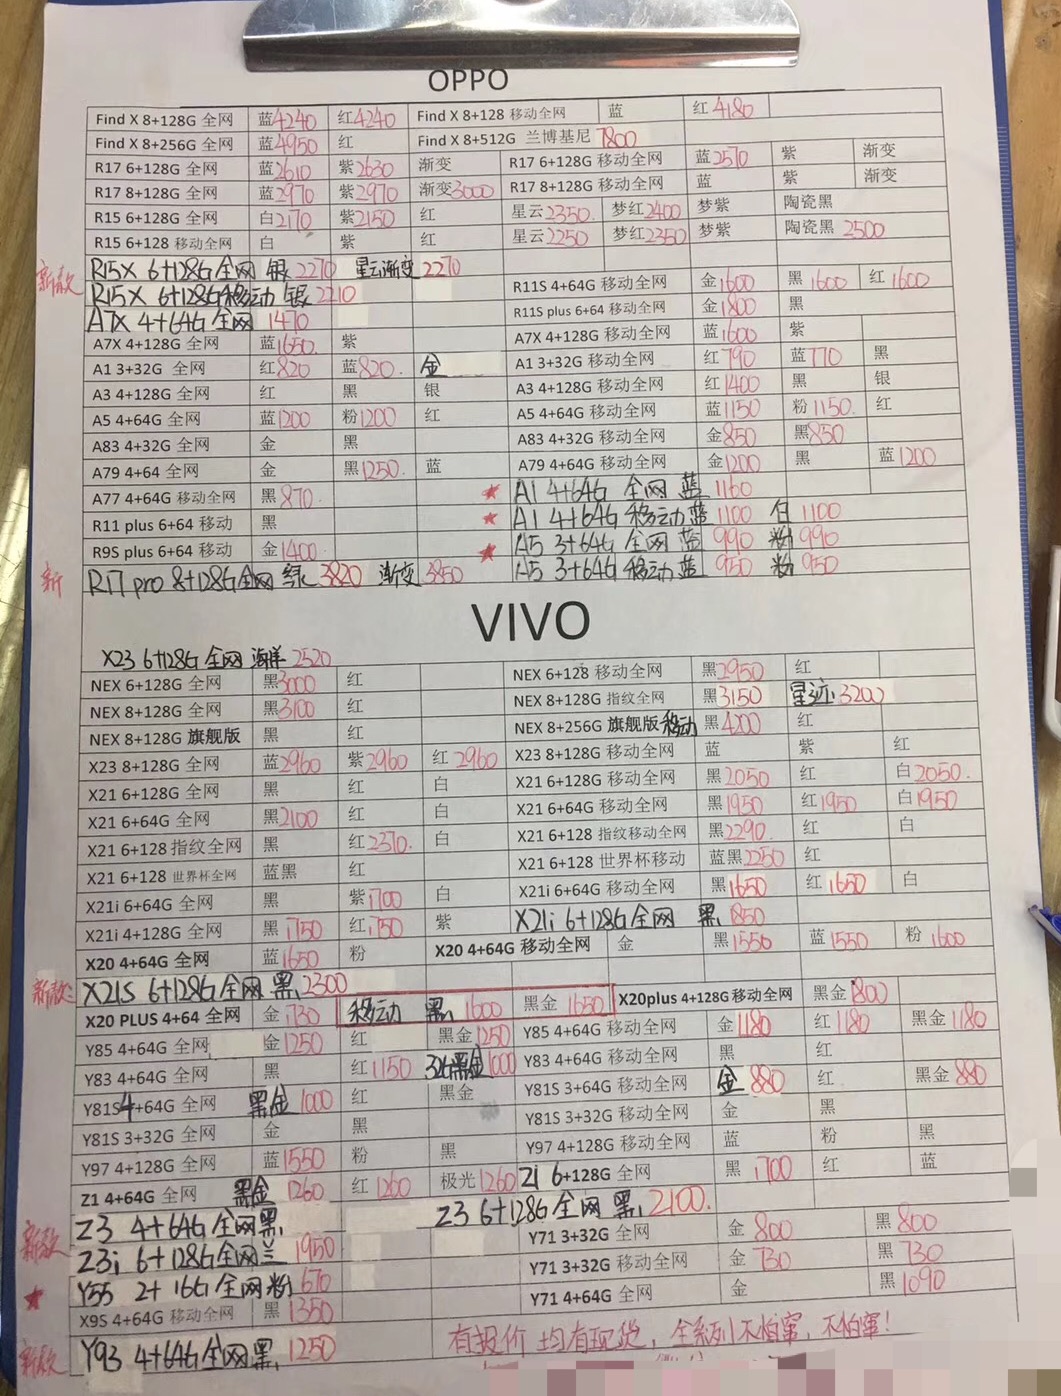 OPPO
Find X 8+128G 全网 蓝4240 红4240 Find X 8+128 移动全网 蓝 红4180
Find X 8+256G 全网 蓝4950 红 Find X 8+512G 兰博基尼 7800
R17 6+128G 全网 蓝2610 紫2630 渐变 R17 6+128G 移动全网 蓝2570 紫 渐变
R17 8+128G 全网 蓝2970 紫2970 渐变3000 R17 8+128G 移动全网 蓝 紫 渐变
R15 6+128G 全网 白2170 紫2150 红 星云2350. 梦红2400 梦紫 陶瓷黑
R15 6+128 移动全网 白 紫 红 星云2250 梦红2350 梦紫 陶瓷黑 2500
新款 R15X 6+128G全网 银 2270 星云渐变 2270
R15X 6+128G移动 银 2210 R11S 4+64G 全网 金1600 黑1600 红1600
A7X 4+64G 全网 1470 R11S plus 6+64 移动全网 金1800 黑
A7X 4+128G 全网 蓝1650. 紫 A7X 4+128G 移动全网 蓝1600 紫
A1 3+32G 全网 红820 蓝820. 金 A1 3+32G 移动全网 红790 蓝770 黑
A3 4+128G 全网 红 黑 银 A3 4+128G 移动全网 红1400 黑 银
A5 4+64G 全网 蓝1200 粉1200 红 A5 4+64G 移动全网 蓝1150 粉1150. 红
A83 4+32G 全网 金 黑 A83 4+32G 移动全网 金850 黑850
A79 4+64 全网 金 黑1250. 蓝 A79 4+64G 移动全网 金1200 黑 蓝1200
A77 4+64G 移动全网 黑870. ★ A1 4+64G 全网 蓝 1160
R11 plus 6+64 移动 黑 ★ A1 4+64G 移动蓝 1100 白 1100
R9S plus 6+64 移动 金1400. ★ A5 3+64G 全网 蓝 990 粉 990
新 R17 pro 8+128G全网 绿 3820 渐变 3850 A5 3+64G 移动蓝 950 粉 950
VIVO
X23 6+128G 全网 海洋 2520
NEX 6+128G 全网 黑3000 红 NEX 6+128 移动全网 黑2950 红
NEX 8+128G 全网 黑3100 红 NEX 8+128G 指纹全网 黑3150 星迹 3200
NEX 8+128G 旗舰版 黑 红 NEX 8+256G 旗舰版移动 黑4200 红
X23 8+128G 全网 蓝2960 紫2960 红2960 X23 8+128G 移动全网 蓝 紫 红
X21 6+128G 全网 黑 红 白 X21 6+128G 移动全网 黑2050 红 白2050.
X21 6+64G 全网 黑2100 红 白 X21 6+64G 移动全网 黑1950 红1950 白1950
X21 6+128 指纹全网 黑 红2370. 白 X21 6+128 指纹移动全网 黑2290. 红 白
X21 6+128 世界杯全网 蓝黑 红 X21 6+128 世界杯移动 蓝黑2250 红
X21i 6+64G 全网 黑 紫1700 白 X21i 6+64G 移动全网 黑1650 红1650 白
X21i 4+128G 全网 黑1750 红1750 紫 X21i 6+128G 全网 黑1850
X20 4+64G 全网 蓝1650 粉 X20 4+64G 移动全网 金 黑1550 蓝1550 粉1600
新款 X21S 6+128G 全网 黑 2300
X20 PLUS 4+64 全网 金1730 移动 黑 1600 黑金 1650 X20plus 4+128G 移动全网 黑金1800
Y85 4+64G 全网 金1250 红 黑金1250 Y85 4+64G 移动全网 金1180 红1180 黑金1180
Y83 4+64G 全网 黑 红1150 32G黑金1000 Y83 4+64G 移动全网 黑 红
Y81S4+64G 全网 黑金1000 红 黑金 Y81S 3+64G 移动全网 金 880 红 黑金880
Y81S 3+32G 全网 金 黑 Y81S 3+32G 移动全网 金 黑
Y97 4+128G 全网 蓝1550 粉 黑 Y97 4+128G 移动全网 蓝 粉 黑
Z1 4+64G 全网 黑金 1260 红1260 极光1260 Z1 6+128G 全网 黑1700 红 蓝
Z3 6+128G 全网 黑 2100.
新款 Z3 4+64G 全网黑
Z3i 6+128G 全网兰 1950 Y71 3+32G 全网 金800 黑800
★ Y55 2+16G 全网粉 670 Y71 3+32G 移动全网 金730 黑730
X9S 4+64G 移动全网 黑1350 Y71 4+64G 全网 金 黑1090
新款 Y93 4+64G全网黑 1250 有报价 均有现货，全系列不怕窜，不怕窜！